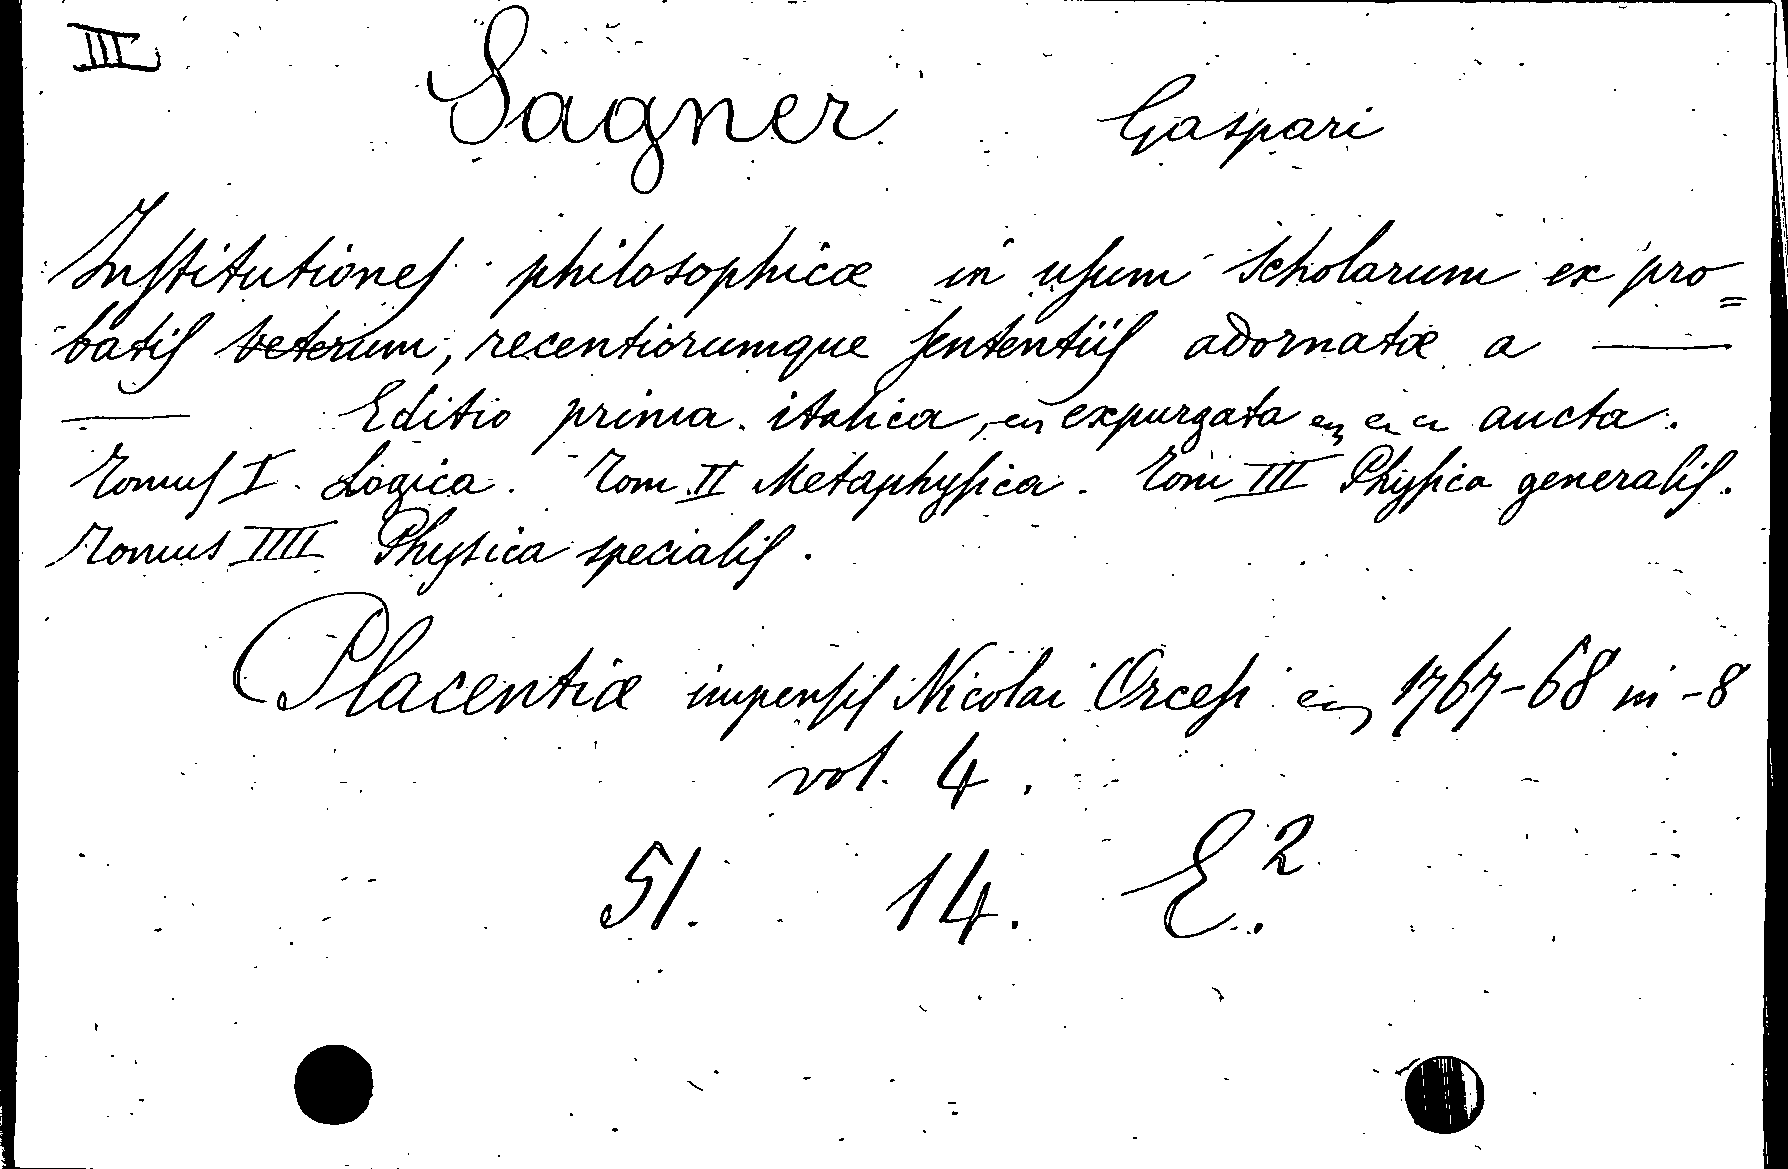 III
Sagner Gaspari
Inſtitutioneſ philosophicæ in uſum scholarum ex pro=
batiſ veterum, recentiorumque ſententiiſ adornatæ a —
— Editio prima italica, expurgata aucta.
Tomuſ I. Logica. Tom. II Metaphyſica. Tom III Phyſica generaliſ.
Tomus IIII Physica specialiſ.
Placentiæ impenſiſ Nicolai Orceſi 1767-68 in-8
vol. 4.
51. 14. E².